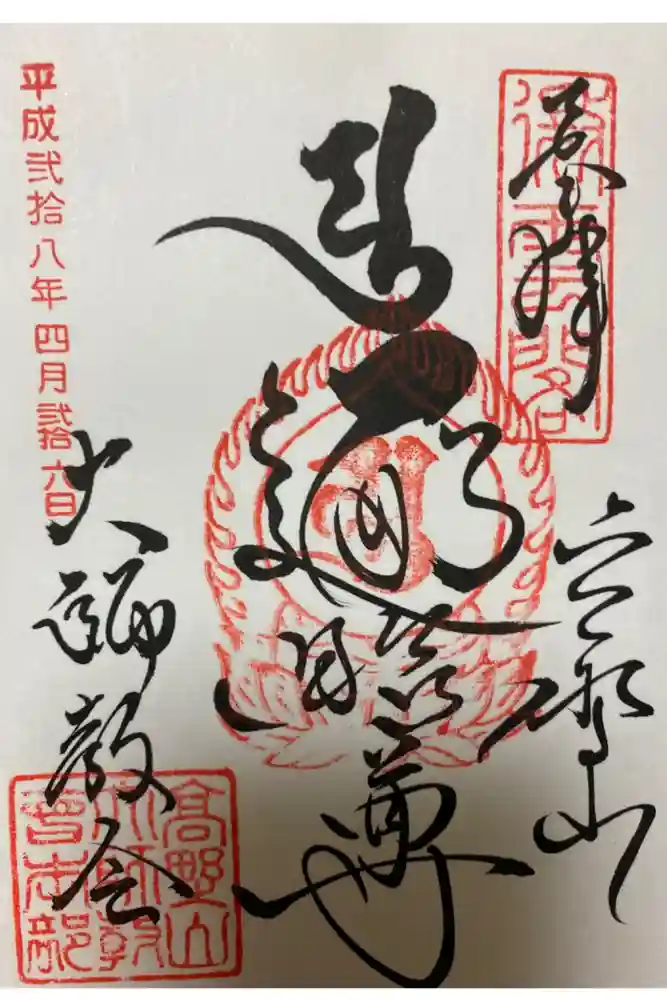 奉拝
高野山
遍照尊
大師教会
平成弐拾八年四月弐拾六日
高野山
大師教
會本部